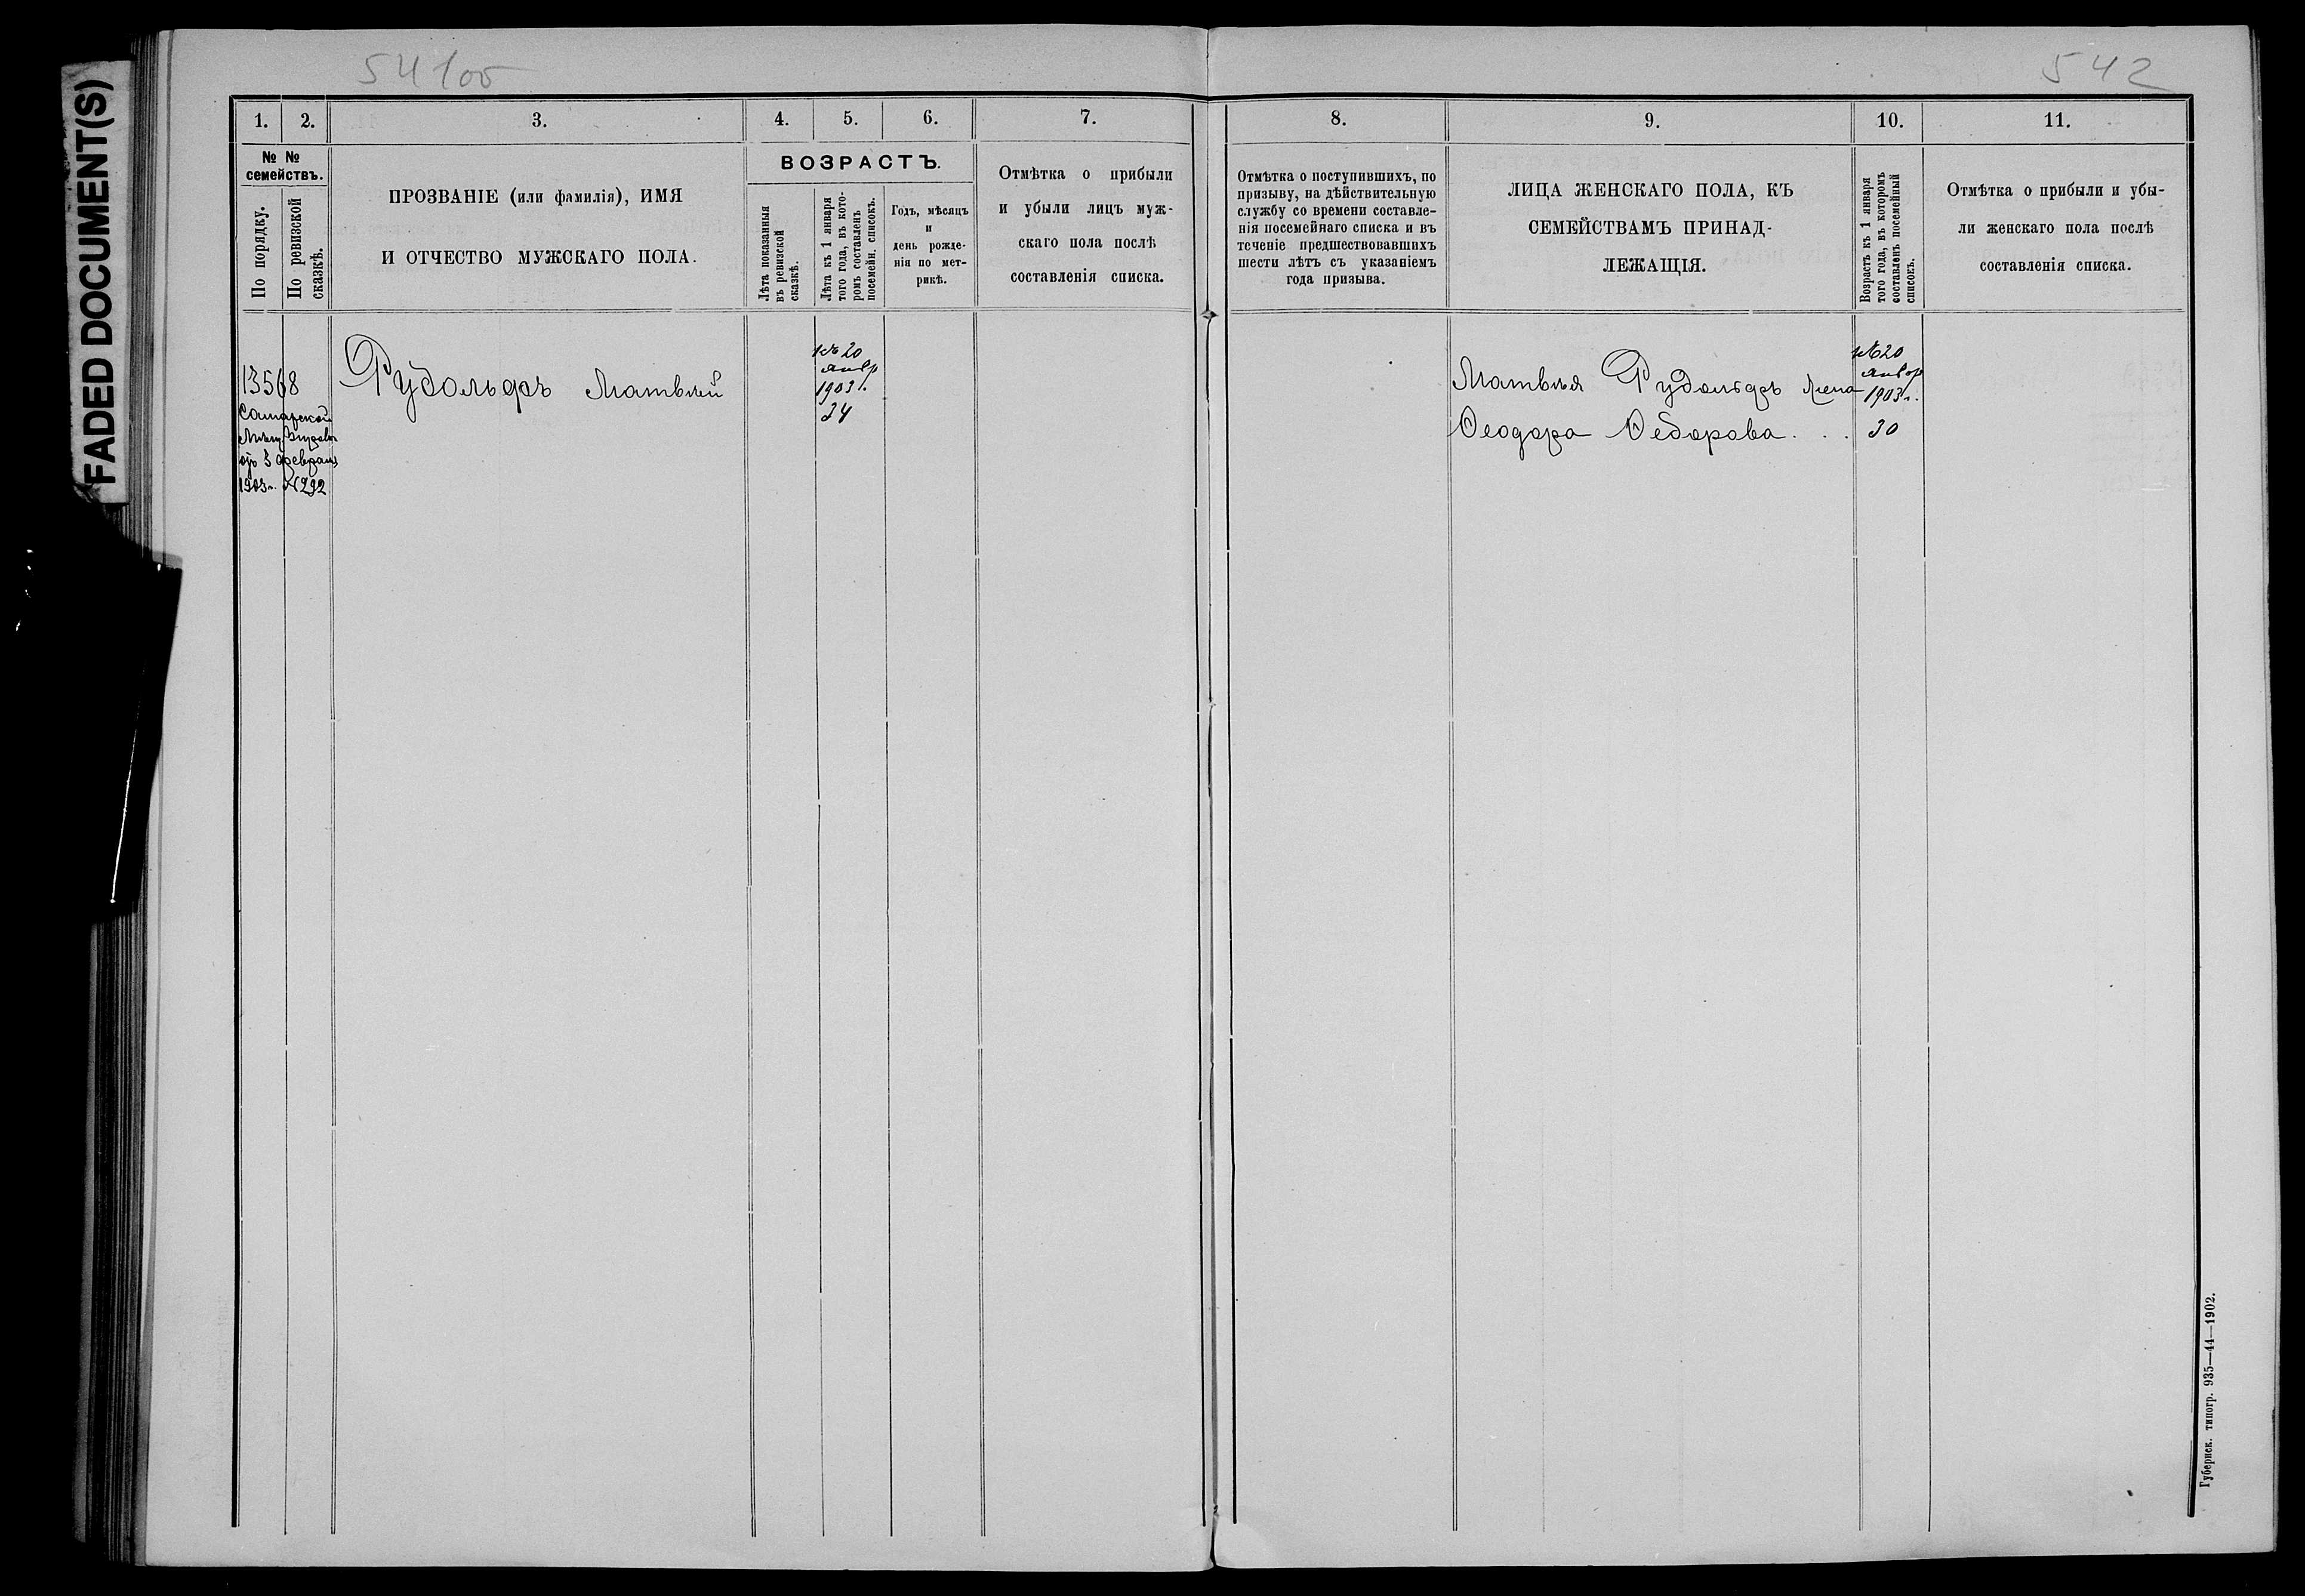 FADED DOCUMENT(S)
54100
542
1. 2. 3. 4. 5. 6. 7.
№ № семействъ.
По порядку.
По ревизской сказкѣ.
ПРОЗВАНІЕ (или фамилія), ИМЯ
И ОТЧЕСТВО МУЖСКАГО ПОЛА.
ВОЗРАСТЪ.
Лѣта показанныя
въ ревизской
сказкѣ.
Лѣта къ 1 января
того года, въ кото-
ромъ составленъ
посемейн. списокъ.
Годъ, мѣсяцъ
и
день рожде-
нія по мет-
рикѣ.
Отмѣтка о прибыли
и убыли лицъ муж-
скаго пола послѣ
составленія списка.
13568
Самарской
Мѣщ. Управы
отъ 3 февраля
1903 г. №292
Рудольфъ Матвѣй
къ 20
январ
1903 г.
34
8. 9. 10. 11.
Отмѣтка о поступившихъ, по
призыву, на дѣйствительную
службу со времени составле-
нія посемейнаго списка и въ
теченіе предшествовавшихъ
шести лѣтъ съ указаніемъ
года призыва.
ЛИЦА ЖЕНСКАГО ПОЛА, КЪ
СЕМЕЙСТВАМЪ ПРИНАД-
ЛЕЖАЩІЯ.
Возрастъ къ 1 января
того года, въ которомъ
составленъ посемейный
списокъ.
Отмѣтка о прибыли и убы-
ли женскаго пола послѣ
составленія списка.
Матвѣя Рудольфъ жена
Ѳеодора Ѳедорова . . .
къ 20
январ
1903 г.
30
Губернск. типогр. 935—44—1902.